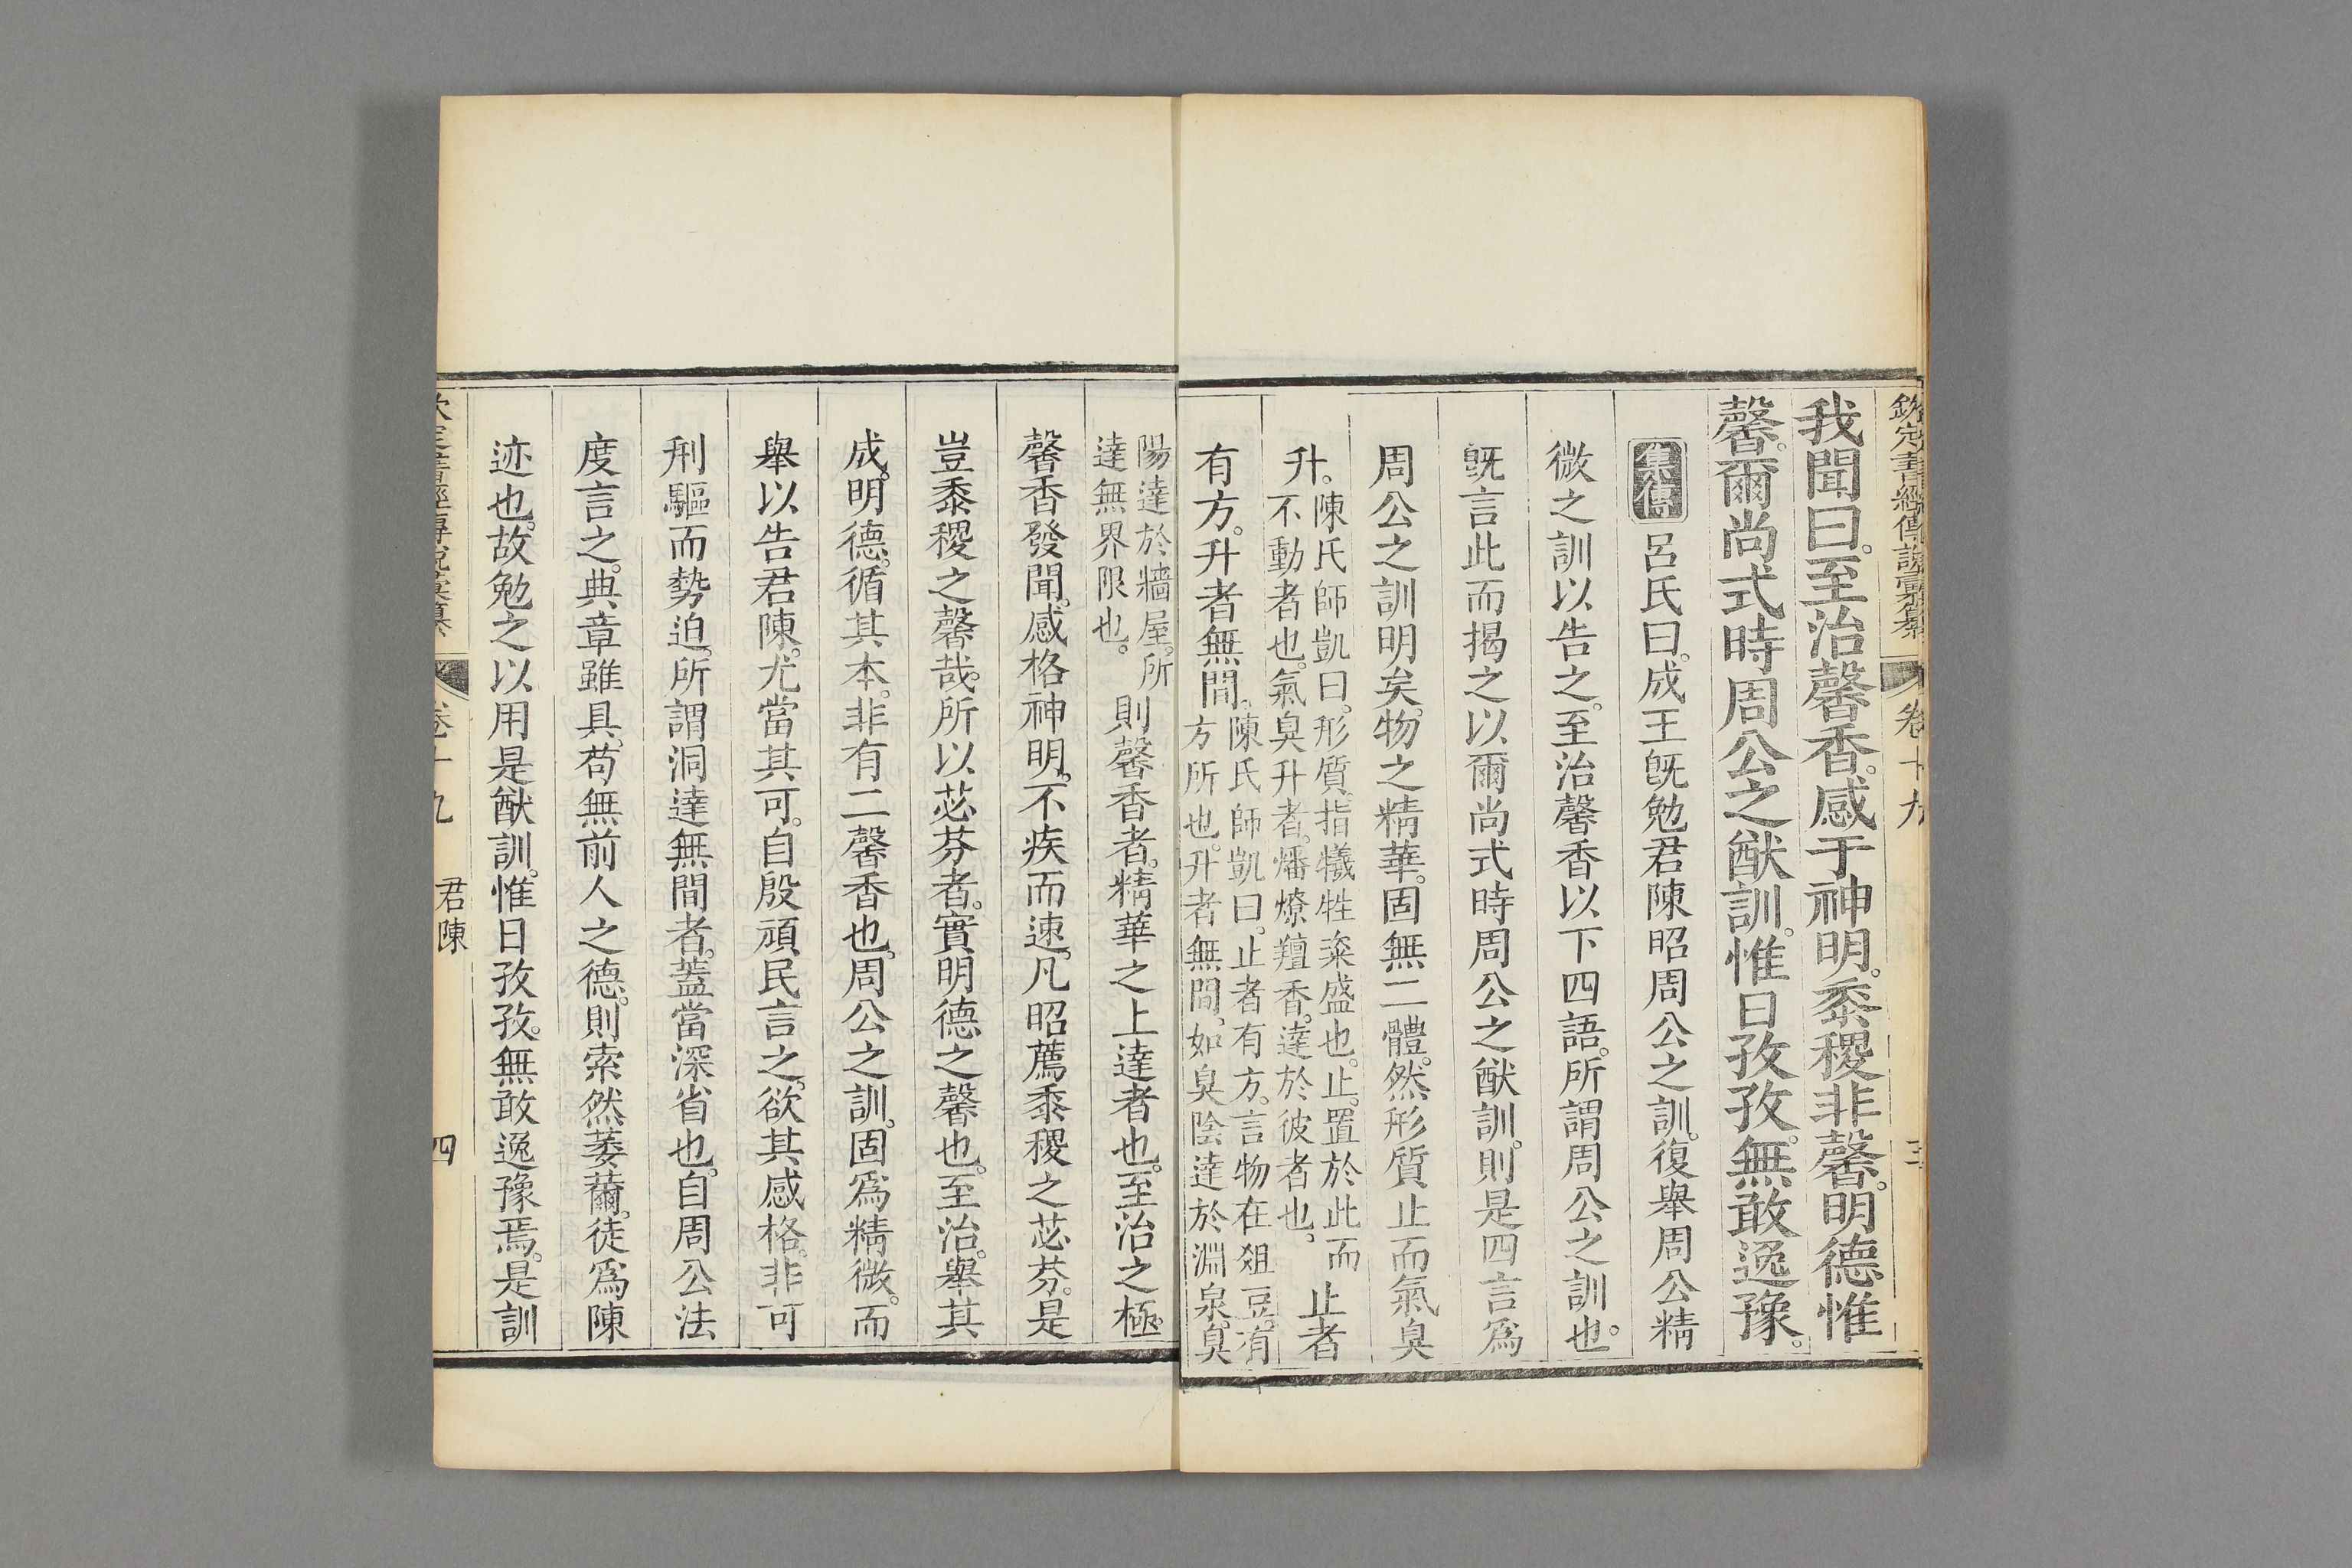 欽定書經傳說彙纂 卷十九 三
我聞曰。至治馨香。感于神明。黍稷非馨。明德惟
馨。爾尚式時周公之猷訓。惟日孜孜。無敢逸豫。
集傳 呂氏曰。成王旣勉君陳昭周公之訓。復舉周公精
微之訓以告之。至治馨香以下四語。所謂周公之訓也。
旣言此而揭之以爾尚式時周公之猷訓。則是四言爲
周公之訓明矣。物之精華。固無二體。然形質止而氣臭
升。陳氏師凱曰。形質指犧牲粢盛也。止。置於此而不動者也。氣臭升者。燔燎羶香。達於彼者也。止者
有方。升者無間。陳氏師凱曰。止者有方。言物在俎豆。有方所也。升者無間。如臭陰達於淵泉。臭
陽達於牆屋。所達無界限也。則馨香者。精華之上達者也。至治之極。
馨香發聞。感格神明。不疾而速。凡昭薦黍稷之苾芬。是
豈黍稷之馨哉。所以苾芬者。實明德之馨也。至治。舉其
成。明德。循其本。非有二馨香也。周公之訓。固爲精微。而
舉以告君陳。尤當其可。自殷頑民言之。欲其感格。非可
刑驅而勢迫。所謂洞達無間者。蓋當深省也。自周公法
度言之。典章雖具。苟無前人之德。則索然萎薾。徒爲陳
迹也。故勉之以用是猷訓。惟日孜孜。無敢逸豫焉。是訓
欽定書經傳說彙纂 卷十九 君陳 四